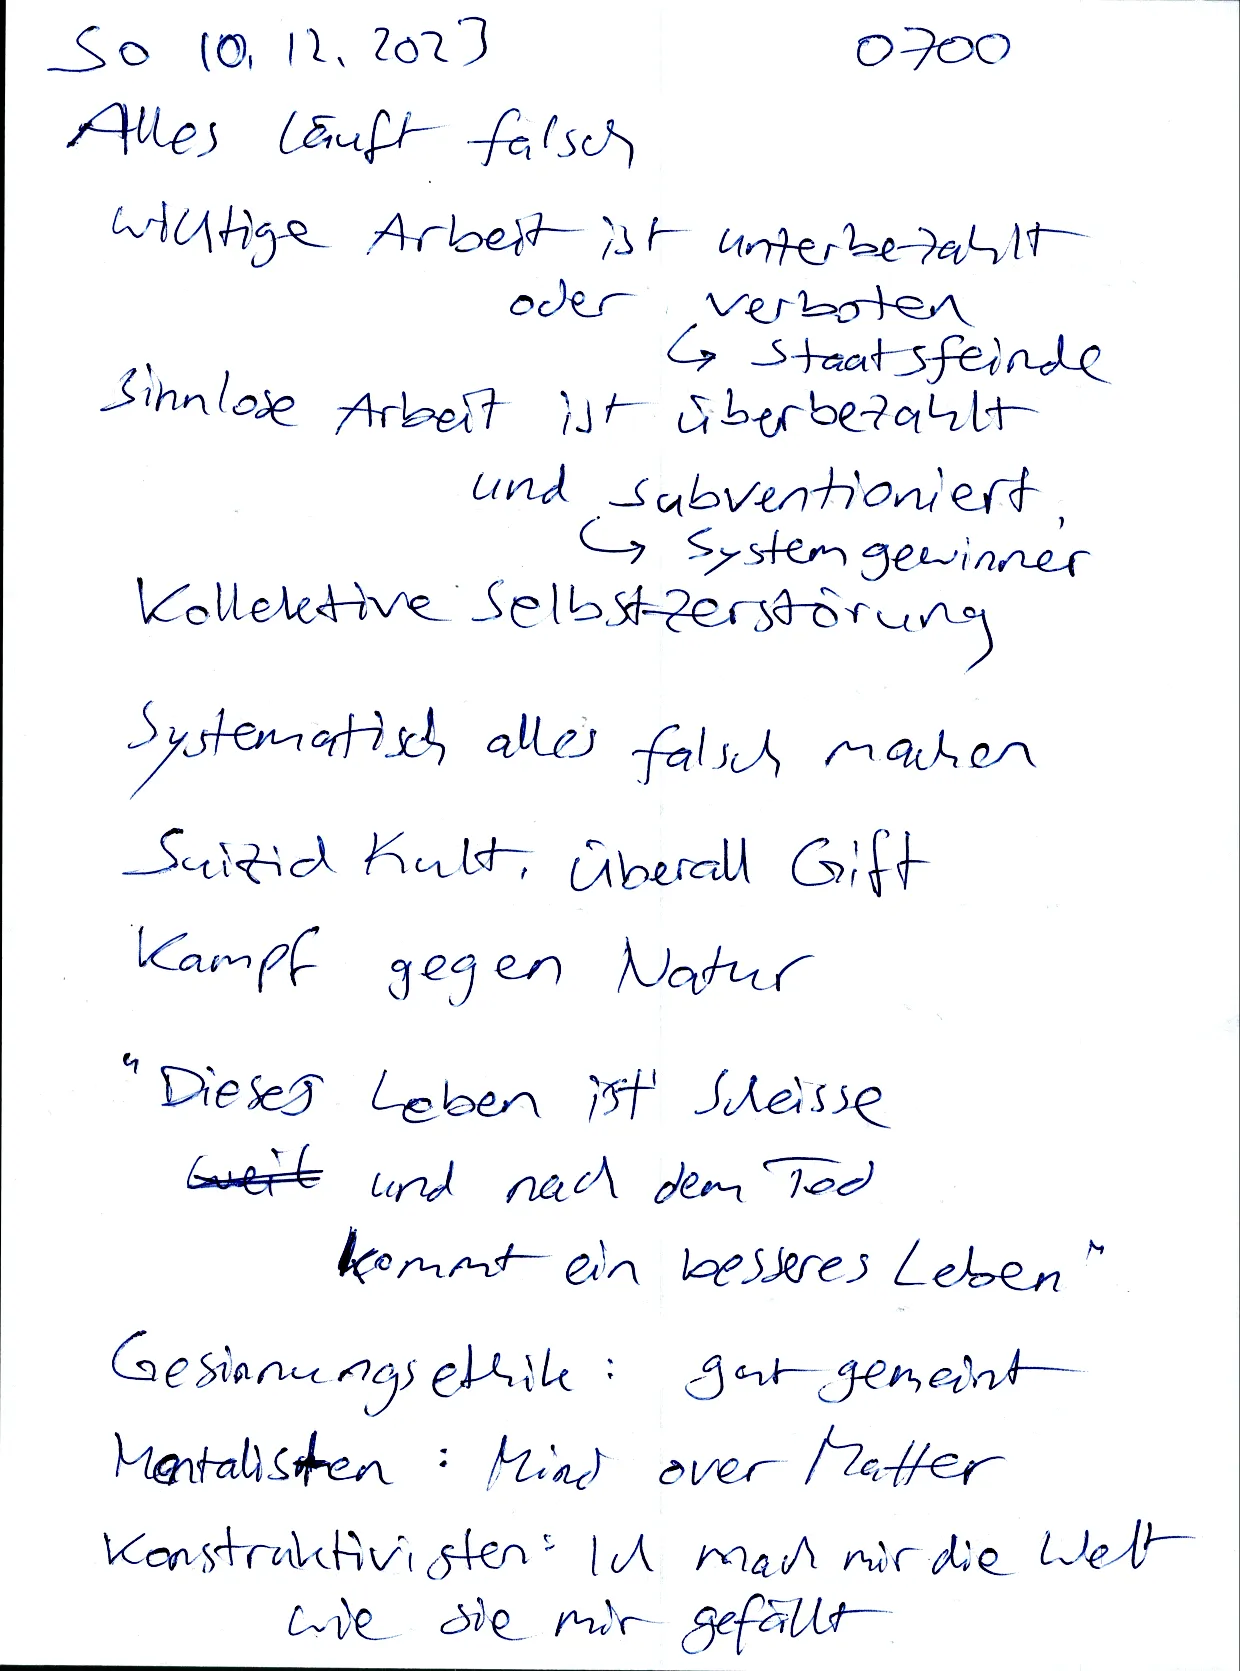 So 10.12.2023 0700
Alles läuft falsch
wichtige Arbeit ist unterbezahlt
oder verboten
↳ Staatsfeinde
sinnlose Arbeit ist überbezahlt
und subventioniert,
↳ Systemgewinner
Kollektive Selbstzerstörung
Systematisch alles falsch machen
Suizid Kult, überall Gift
Kampf gegen Natur
"Dieses Leben ist Scheisse
und nach dem Tod
kommt ein besseres Leben"
Gesinnungsethik: gut gemeint
Mentalisten: Mind over Matter
Konstruktivisten: Ich mach mir die Welt
wie sie mir gefällt